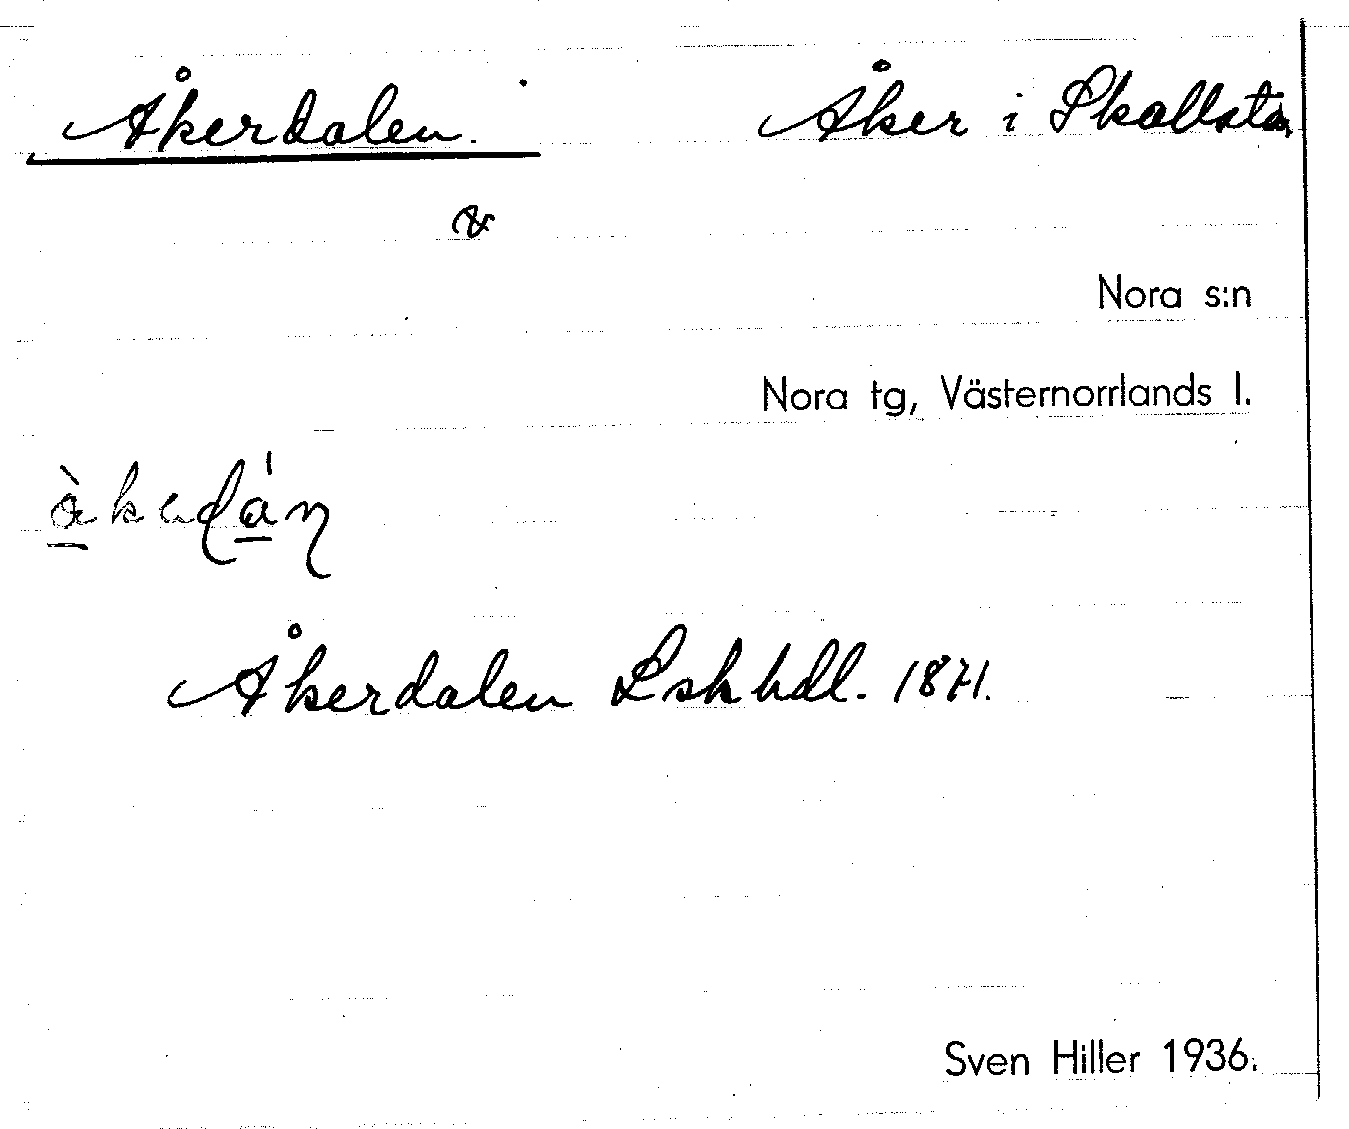 Åkerdalen. Åker i Skallsta
Nora s:n
Nora tg, Västernorrlands l.
Åkerdalen Lskhdl. 1871.
Sven Hiller 1936.